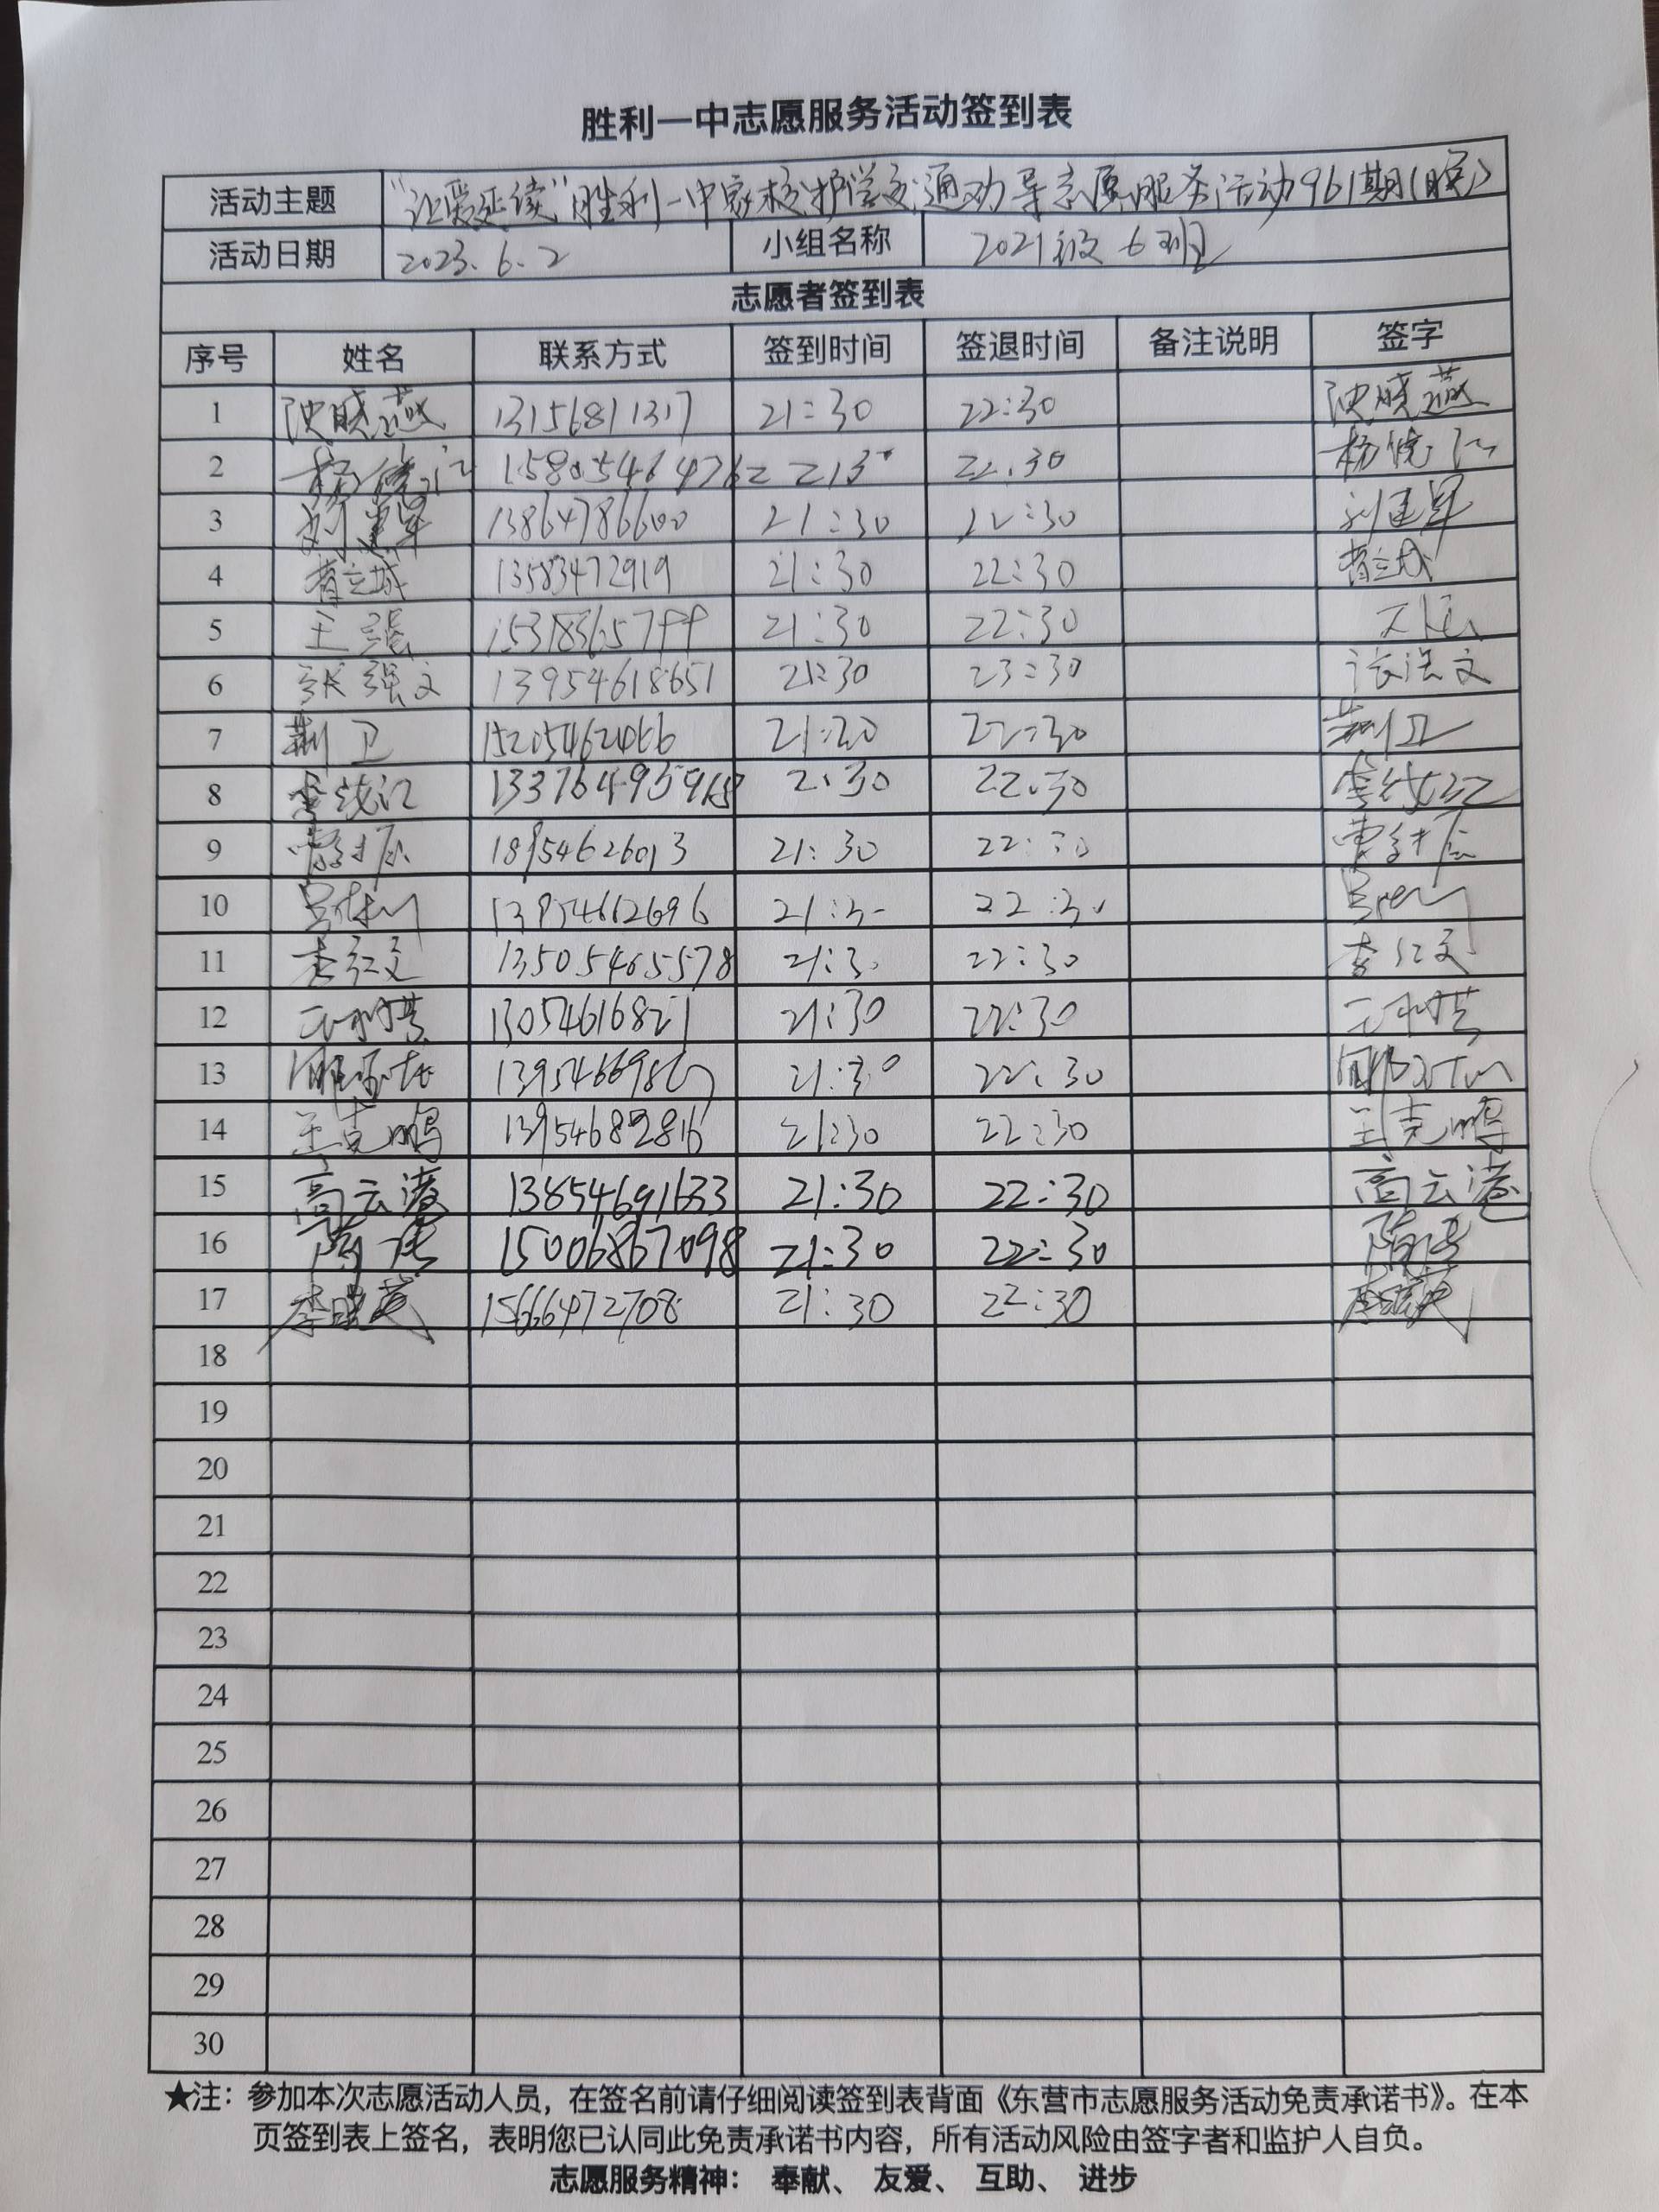 胜利一中志愿服务活动签到表
活动主题 "让爱延续"胜利一中家校护学交通劝导志愿服务活动961期(晚)
活动日期 2023.6.2 小组名称 2021级6班
志愿者签到表
序号 姓名 联系方式 签到时间 签退时间 备注说明 签字
1 晓燕 13156811317 21:30 22:30 晓燕
2 杨 15805464762 2130 22:30 杨
3 刘建军 13864786600 21:30 22:30 刘建军
4 13583472919 21:30 22:30
5 王强 15318365799 21:30 22:30
6 张强文 13954618651 21:30 23:30 张强文
7 荆卫 15205462066 21:30 22:30 荆卫
8 2:30 22:30
9 18954626013 21:30 22:30
10 13954612696 21:30 22:30
11 李红文 13505465578 21:30 22:30 李红文
12 13054616821 21:30 22:30
13 21:30 22:30
14 王克鹏 13954682816 21:30 22:30 王克鹏
15 高云港 13854691633 21:30 22:30 高云港
16 15006867098 21:30 22:30
17 李晓英 15666472708 21:30 22:30 李晓英
18
19
20
21
22
23
24
25
26
27
28
29
30
★注：参加本次志愿活动人员，在签名前请仔细阅读签到表背面《东营市志愿服务活动免责承诺书》。在本
页签到表上签名，表明您已认同此免责承诺书内容，所有活动风险由签字者和监护人自负。
志愿服务精神： 奉献、 友爱、 互助、 进步